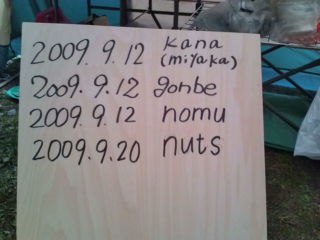 2009.9.12 kana
(miyaka)
2009.9.12 gonbe
2009.9.12 nomu
2009.9.20 nuts